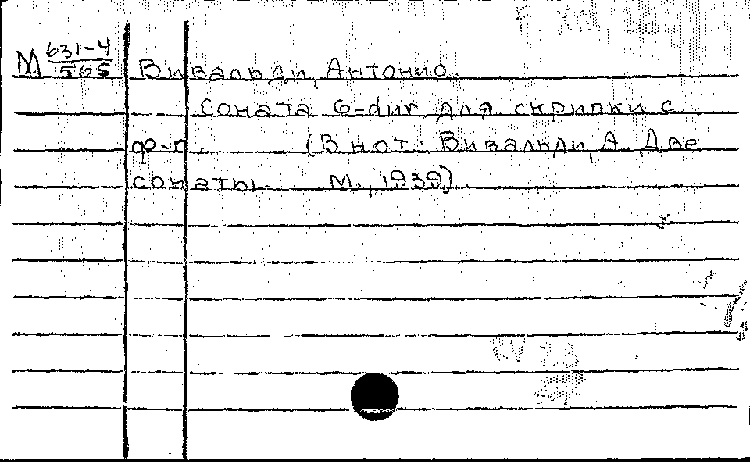 М 631-4/565 Вивальди, Антонио.
Соната G-dur для скрипки с
ф-п. (В нот.: Вивальди, А. Две
сонаты. М., 1939).